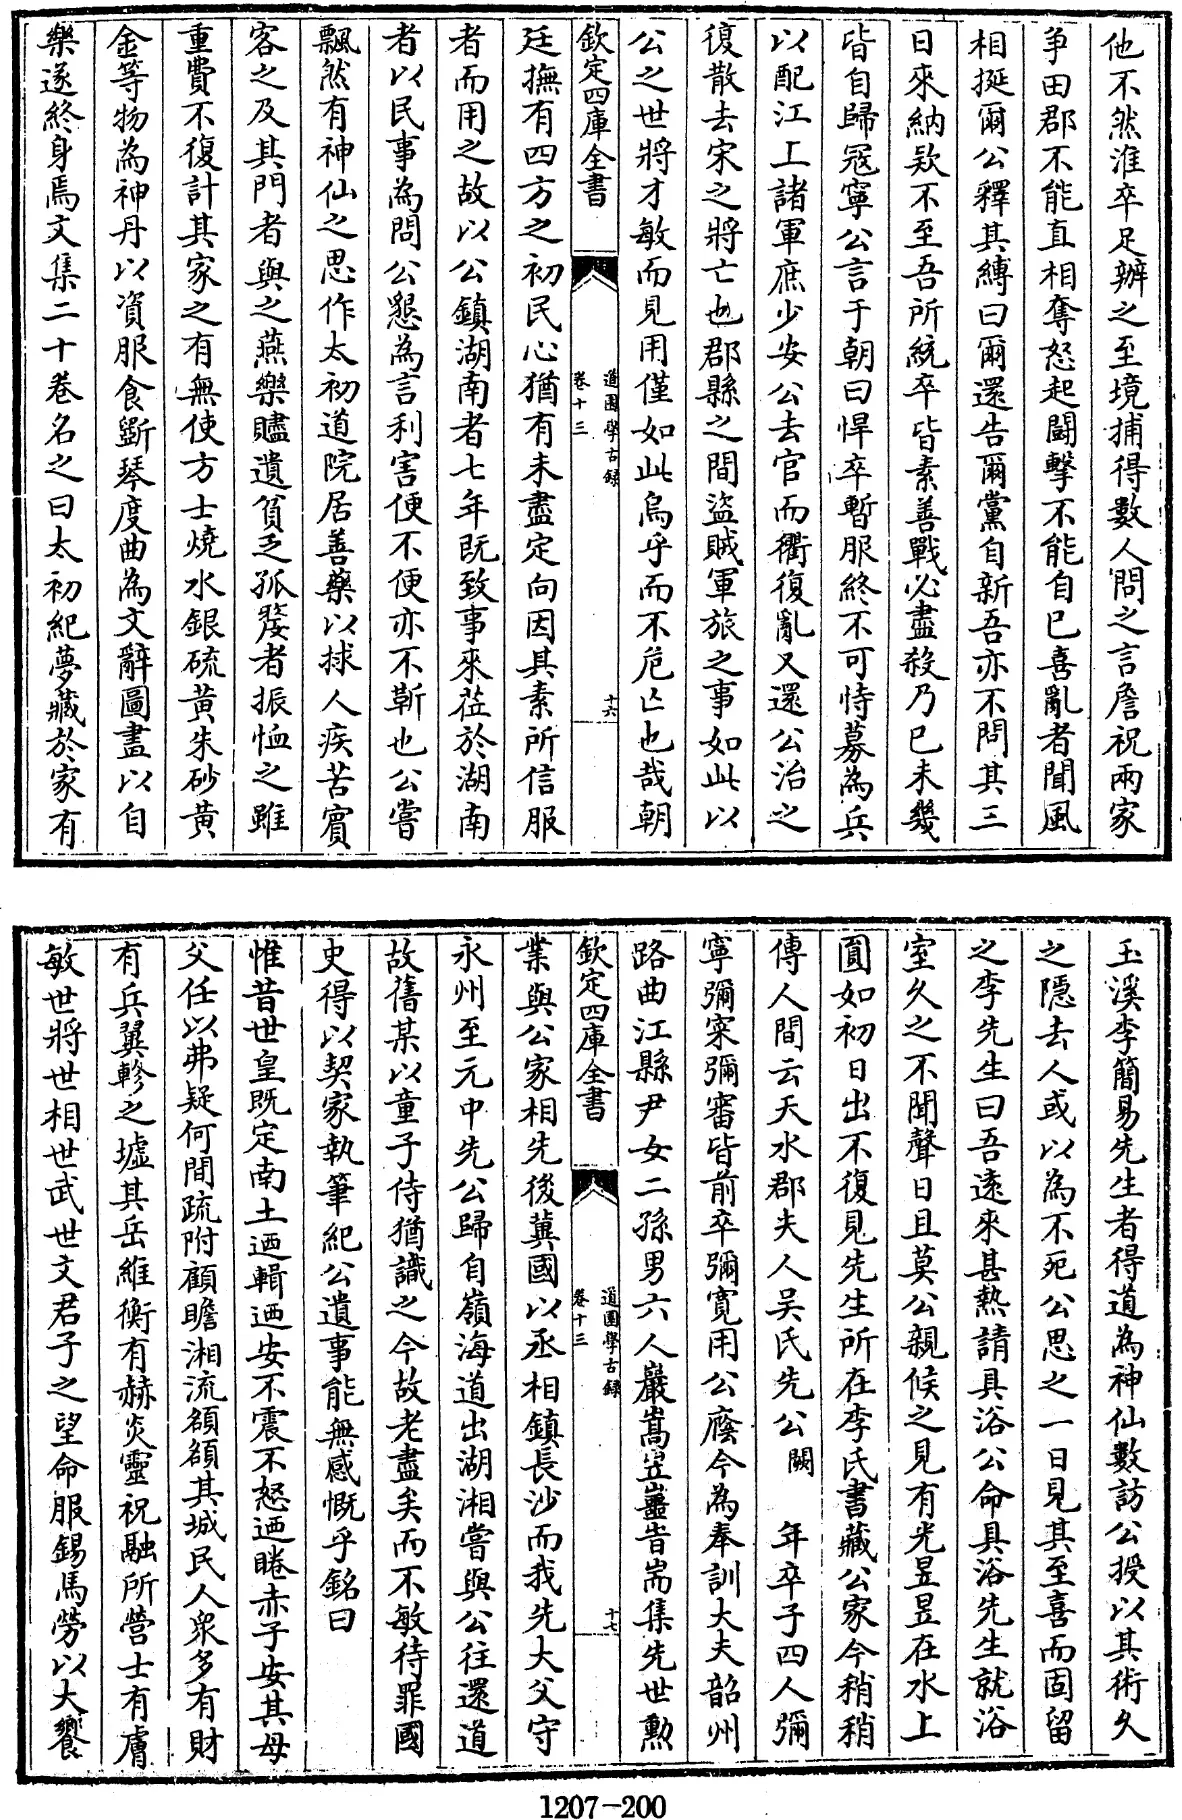 他不然淮卒足辦之至境捕得數人問之言詹祝兩家
爭田郡不能直相奪怒起鬭擊不能自已喜亂者聞風
相挻爾公釋其縛曰爾還告爾黨自新吾亦不問其三
日來納欵不至吾所統卒皆素善戰必盡殺乃已未幾
皆自歸冦寧公言于朝曰悍卒暫服終不可恃募為兵
以配江上諸軍庶少安公去官而衢復亂又還公治之
復散去宋之將亡也郡縣之間盜賊軍旅之事如此以
公之世將才敏而見用僅如此烏乎而不危亡也哉朝
欽定四庫全書
道園學古錄
卷十三
十六
廷撫有四方之初民心猶有未盡定向因其素所信服
者而用之故以公鎮湖南者七年既致事來莅於湖南
者以民事為問公懇為言利害便不便亦不靳也公嘗
飄然有神仙之思作太初道院居善藥以捄人疾苦賓
客之及其門者與之燕樂贐遺貧乏孤嫠者振恤之雖
重費不復計其家之有無使方士燒水銀硫黄朱砂黄
金等物為神丹以資服食斵琴度曲為文辭圖畫以自
樂遂終身焉文集二十卷名之曰太初紀夢藏於家有
玉溪李簡易先生者得道為神仙數訪公授以其術久
之隱去人或以為不死公思之一日見其至喜而固留
之李先生曰吾逺來甚熱請具浴公命具浴先生就浴
室久之不聞聲日且莫公親候之見有光昱昱在水上
圓如初日出不復見先生所在李氏書藏公家今稍稍
傳人間云天水郡夫人吳氏先公闕 年卒子四人彌
寧彌寀彌審皆前卒彌寛用公廕今為奉訓大夫韶州
路曲江縣尹女二孫男六人巖嵩岦㠥岧耑集先世勲
欽定四庫全書
道園學古錄
卷十三
十七
業與公家相先後冀國以丞相鎮長沙而我先大父守
永州至元中先公歸自嶺海道出湖湘嘗與公往還道
故舊某以童子侍猶識之今故老盡矣而不敏待罪國
史得以契家執筆紀公遺事能無感慨乎銘曰
惟昔世皇既定南土廼輯廼安不震不怒廼睠赤子安其母
父任以弗疑何間疏附顧瞻湘流頟頟其城民人衆多有財
有兵翼軫之墟其岳維衡有赫炎靈祝融所營士有膚
敏世將世相世武世文君子之望命服錫馬勞以大饗
1207-200